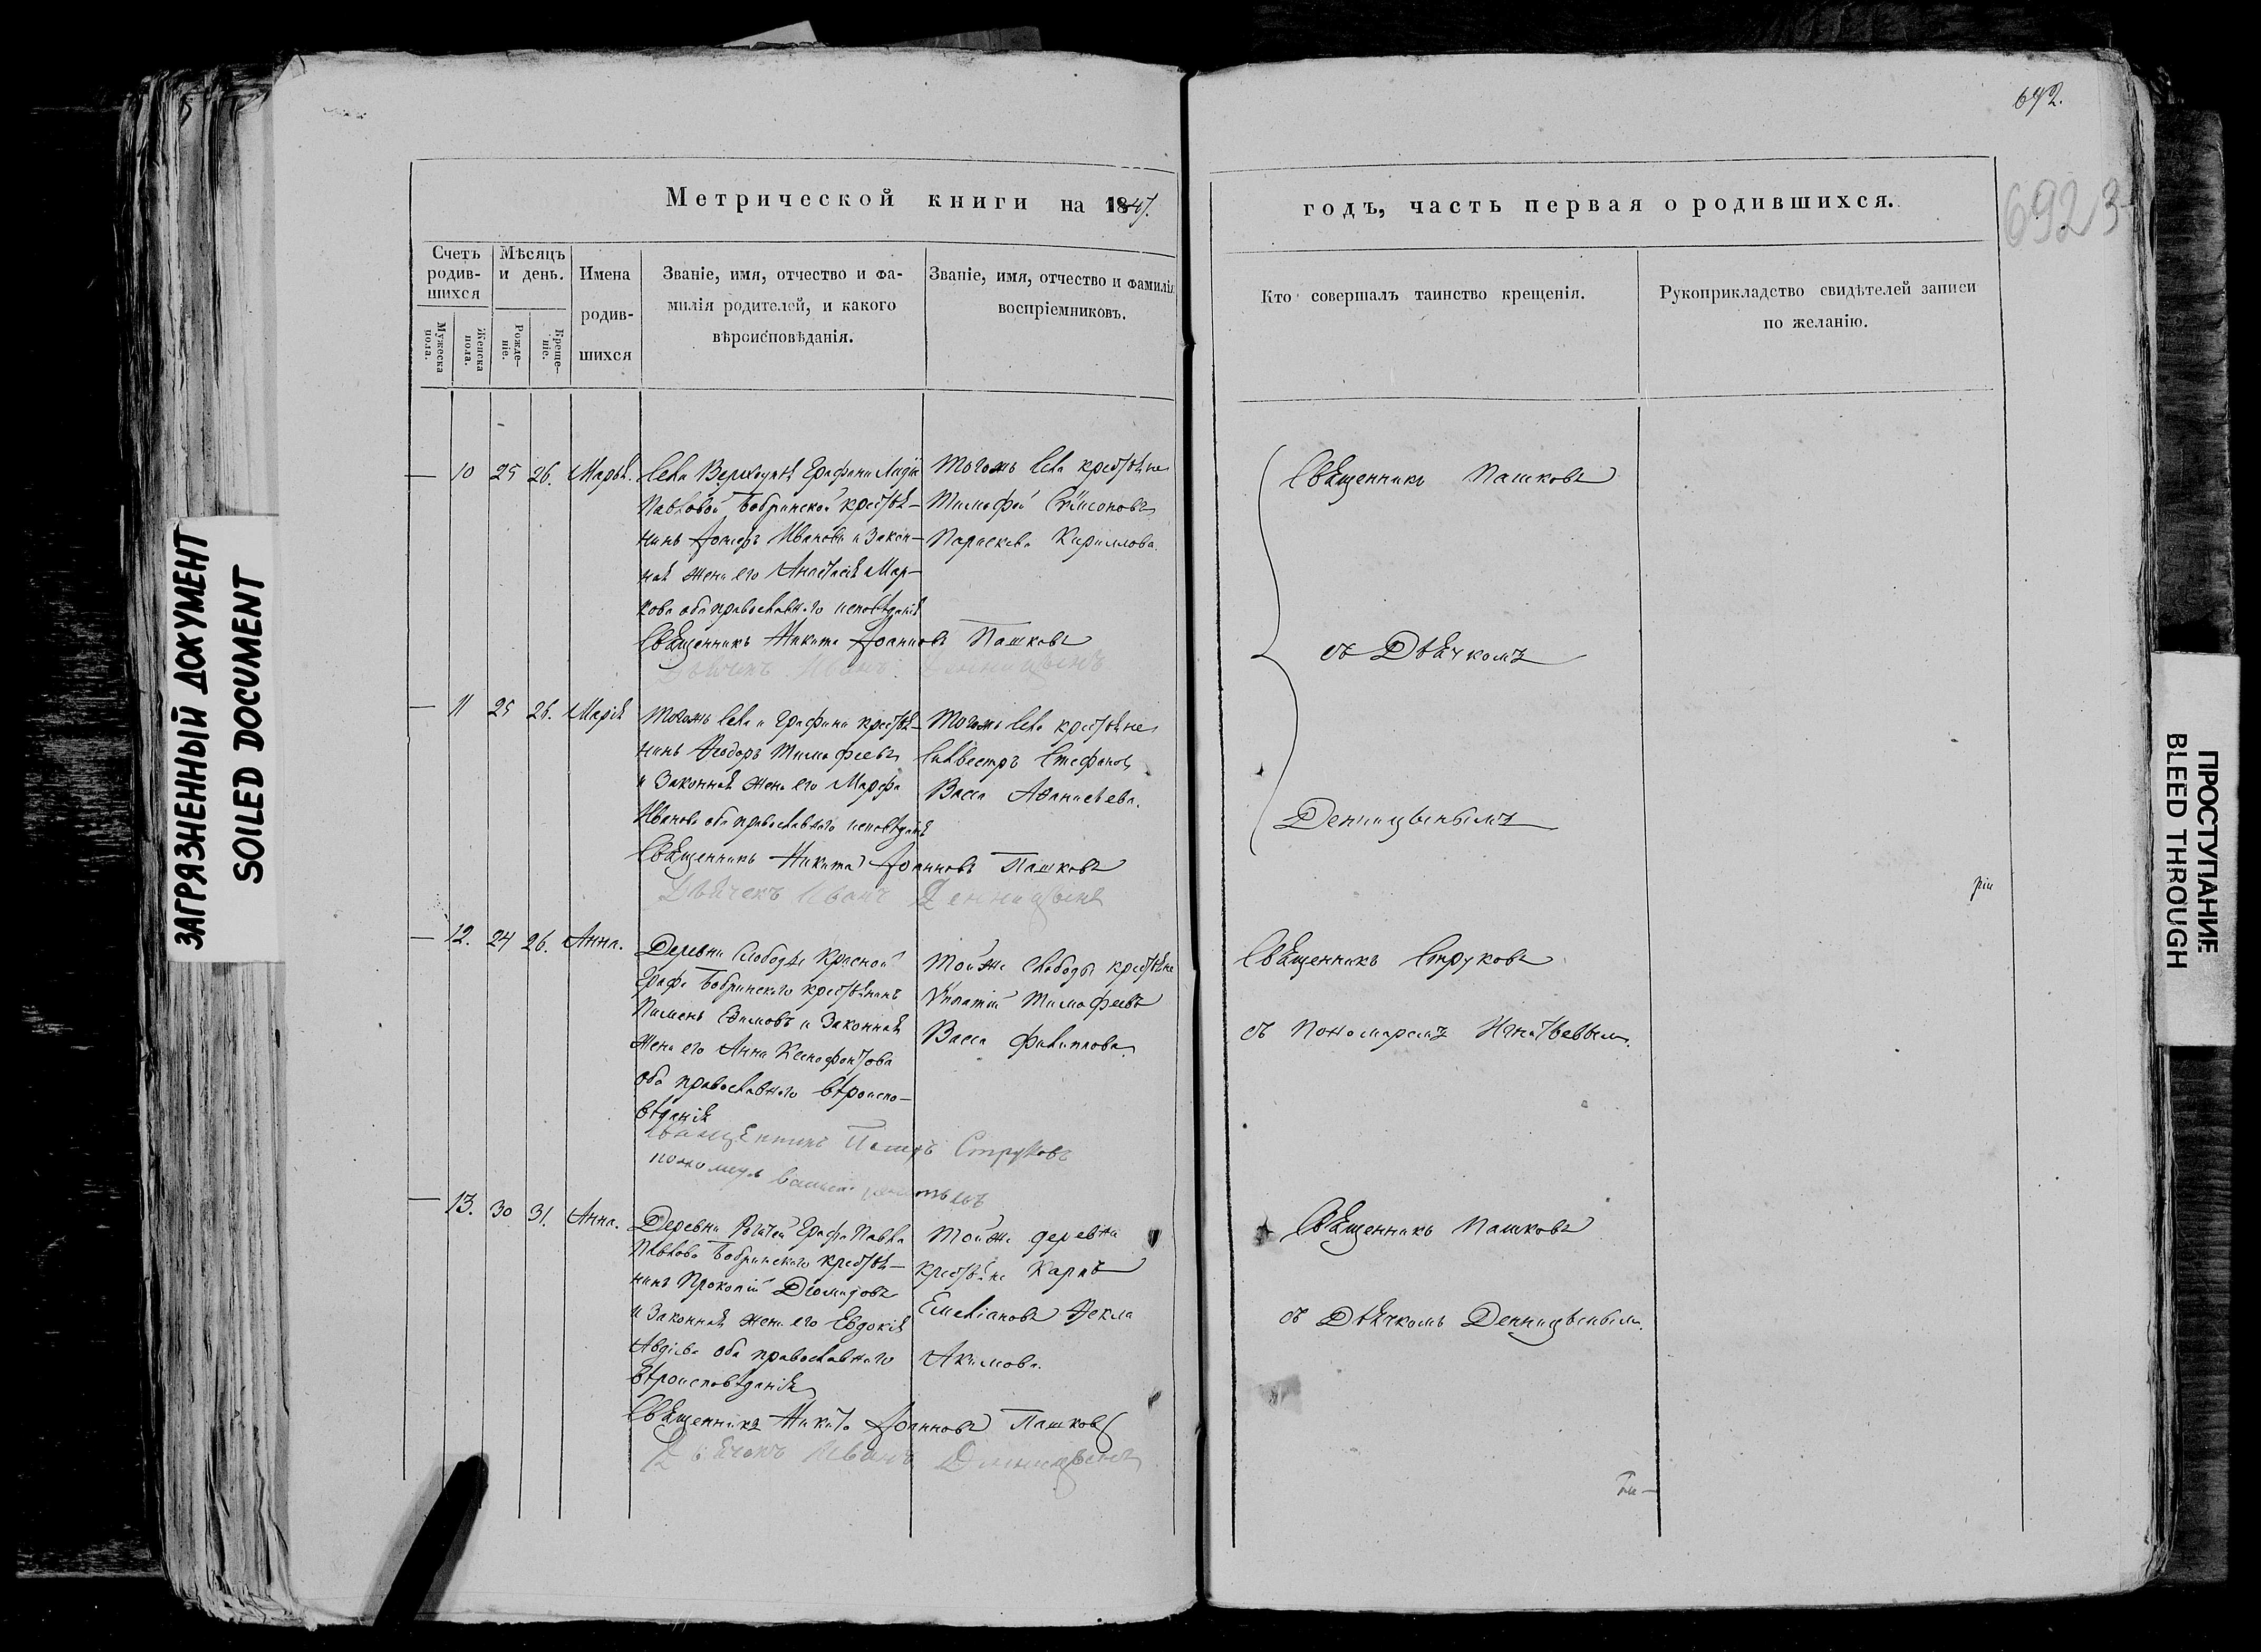 692.
692 3
Метрической книги на 1847.
годъ, часть первая о родившихся.
Счетъ родив-шихся
Мужеска пола.
Женска пола.
Мѣсяцъ и день.
Рожде-ніе.
Креще-ніе.
Имена родив-шихся
Званіе, имя, отчество и фа-
милія родителей, и какого
вѣроисповѣданія.
Званіе, имя, отчество и фамилія
воспріемниковъ.
Кто совершалъ таинство крещенія.
Рукоприкладство свидѣтелей записи
по желанію.
— 10 25 26. Марья.
Села Графини
Павловой Бобринской крестья-
нинъ Иванов и закон-
ная жена его Анастасія Мар-
кова оба православнаго исповѣданія
Священникъ Никита Іоанновъ Пашковъ
Дьячекъ Иванъ Денницынъ
Тогожъ села крестьяне
Тимофей
Параскева Кириллова.
Священникъ Пашковъ
съ Дьячкомъ
Денницынымъ
— 11 25 26. Марія
Тогожъ села и графини крестья-
нинъ Ѳеодоръ Тимофеевъ
и законная жена его Марфа
Иванова оба православнаго исповѣданія
Священникъ Никита Іоанновъ Пашковъ
Дьячекъ Иванъ Денницынъ
Тогожъ села крестьяне
Силвестръ Стефановъ
Васса Аѳанасьева.
— 12. 24 26. Анна.
Деревни Слободы Красной
Графа Бобринскаго крестьянинъ
Пименъ и законная
жена его Анна Ксенофонтова
оба православнаго вѣроиспо-
вѣданія
Священникъ Струковъ
пономарь
Той же слободы крестьяне
Тимофеевъ
Васса Филиппова.
Священникъ Струковъ
съ Пономаремъ Игнатьевымъ.
— 13. 30 31. Анна.
Деревни Графа Павла
Бобринскаго крестья-
нинъ Прокопій Діомидовъ
и законная жена его Евдокія
оба православнаго
вѣроисповѣданія
Священникъ Никита Іоанновъ Пашковъ
Дьячекъ Иванъ Денницынъ
Той же деревни
крестьяне Карпъ
Емеліановъ Ѳекла
Акимова.
Священникъ Пашковъ
съ Дьячкомъ Денницынымъ.
ЗАГРЯЗНЕННЫЙ ДОКУМЕНТ
SOILED DOCUMENT
ПРОСТУПАНИЕ
BLEED THROUGH